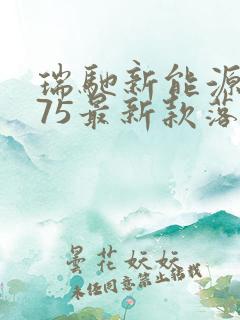 瑞馳新能源
75最新款落
曇花妖妖
未经同意禁止转载